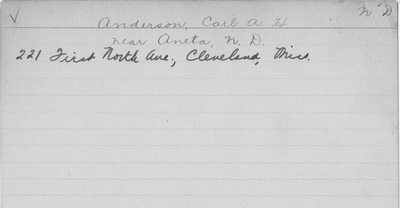 ✓ N. D.
Anderson, Carl A. H
near Aneta, N. D.
221 First North Ave., Cleveland, Miss.